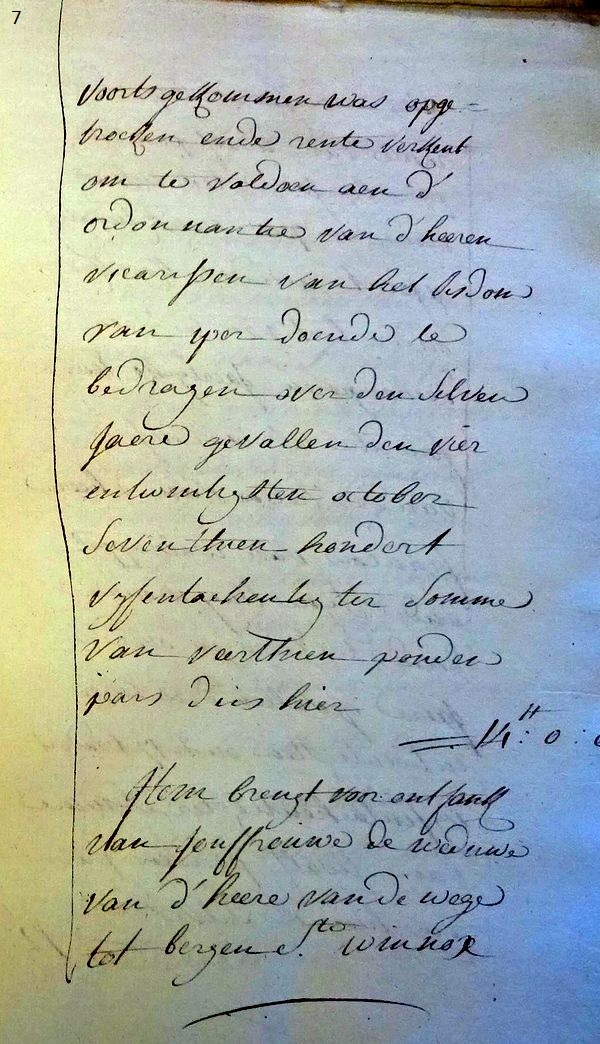 7
voorts gekommen was opge=
trocken ende rente verkent
om te voldoen aen d'
ordonnantie van d'heeren
vicarissen van het bisdom
van iper doende te
bedragen over den selven
jaere gevallen den vier
entwintigsten october
seventhien hondert
vyfentachentig ter somme
van veerthien ponden
pars dies hier
14:ᵗᵗ 0:
Item brengt voor ontfank
van jouffrouwe de weduwe
van d'heere van de wege
tot bergen Sᵗᵉ winnox